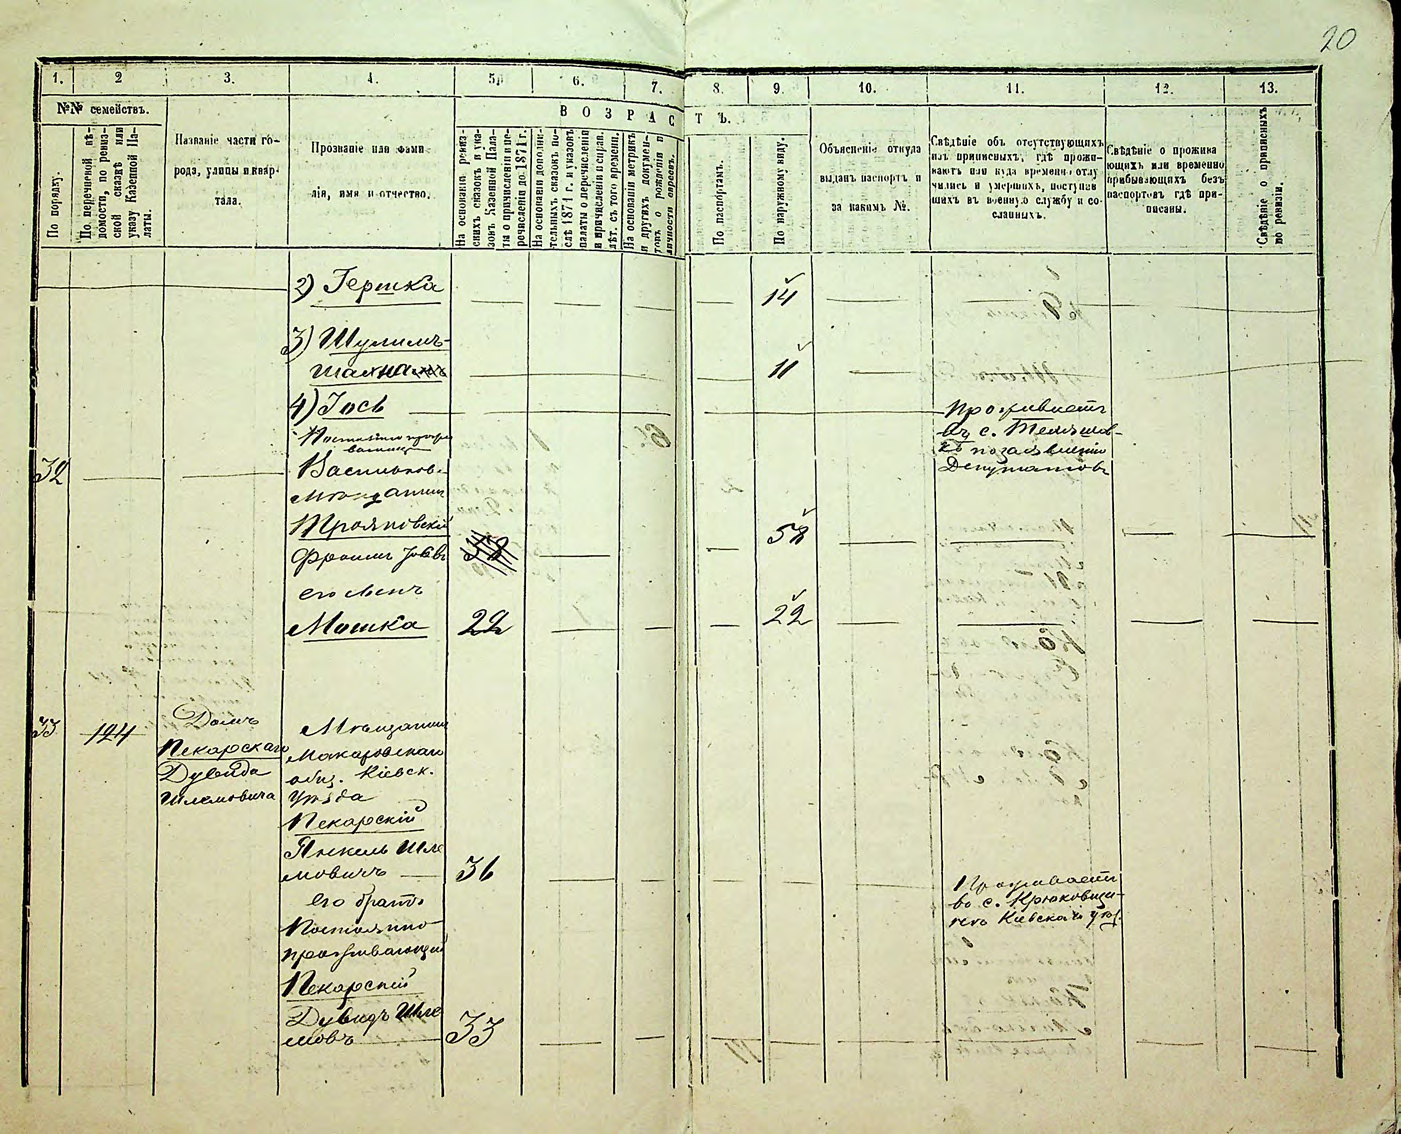 20
1. 2 3. 4. 5. 6. 7. 8. 9. 10. 11. 12. 13.
№№ семействъ.
По порядку.
По перечневой вѣ-
домости, по ревиз-
ской сказкѣ или
указу Казенной Па-
латы.
Названіе части го-
рода, улицы и квар-
тала.
Прозваніе или фами-
лія, имя и отчество.
ВОЗРАСТЪ.
На основаніи ревиз-
скихъ сказокъ и ука-
зовъ Казенной Пала-
ты о причисленіи и пе-
речисленіи до 1871 г.
На основаніи дополни-
тельныхъ сказокъ по-
слѣ 1871 г. и указовъ
палаты о перечисленіи
и причисленіи и справ.
лѣт. съ того времени.
На основаніи метрикъ
и другихъ докумен-
товъ о рожденіи и
личности евреевъ.
По паспортамъ.
По наружному виду.
Объясненіе откуда
выданъ паспортъ и
за какимъ №.
Свѣдѣніе объ отсутствующихъ
изъ приписныхъ, гдѣ прожи-
ваютъ или куда временно отлу
чились и умершихъ, поступив
шихъ въ военную службу и со-
сланныхъ.
Свѣдѣніе о прожива
ющихъ или временно
прибывающихъ безъ
паспортовъ гдѣ при-
писаны.
Свѣдѣніе о приписныхъ
по ревизіи.
2) Гершка 14
3) Шулимъ-
11
4) Іось Проживаетъ
въ с.
по заявленію
Депутатовъ
32
Васильков.
мѣщанинъ
Трояновскій
Фроимъ 58 58
его сынъ
Мошка 22 22
33 124 Домъ
Пекарскаго
Дувида
Шлемовича
Мѣщанинъ
Макаровскаго
общ. Кіевск.
уѣзда
Пекарскій
Янкель Шле
мовичъ 36 Проживаетъ
въ с. Крюковщи-
Кіевскаго уѣз.
его братъ
Постоянно
проживающій
Пекарскій
Дувидъ Шле
мовъ 33